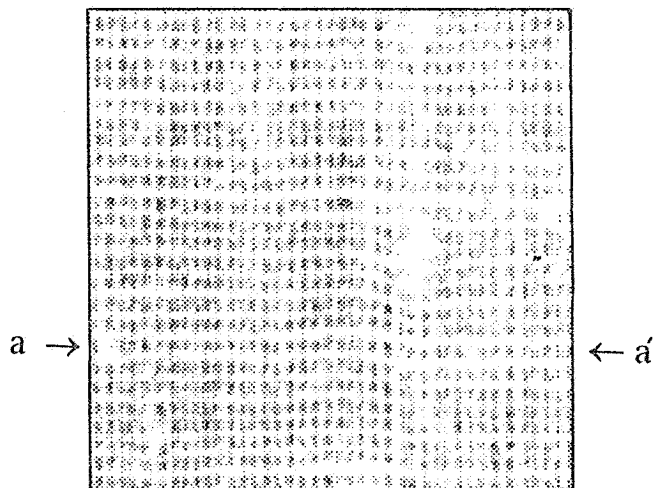 a → ← a′